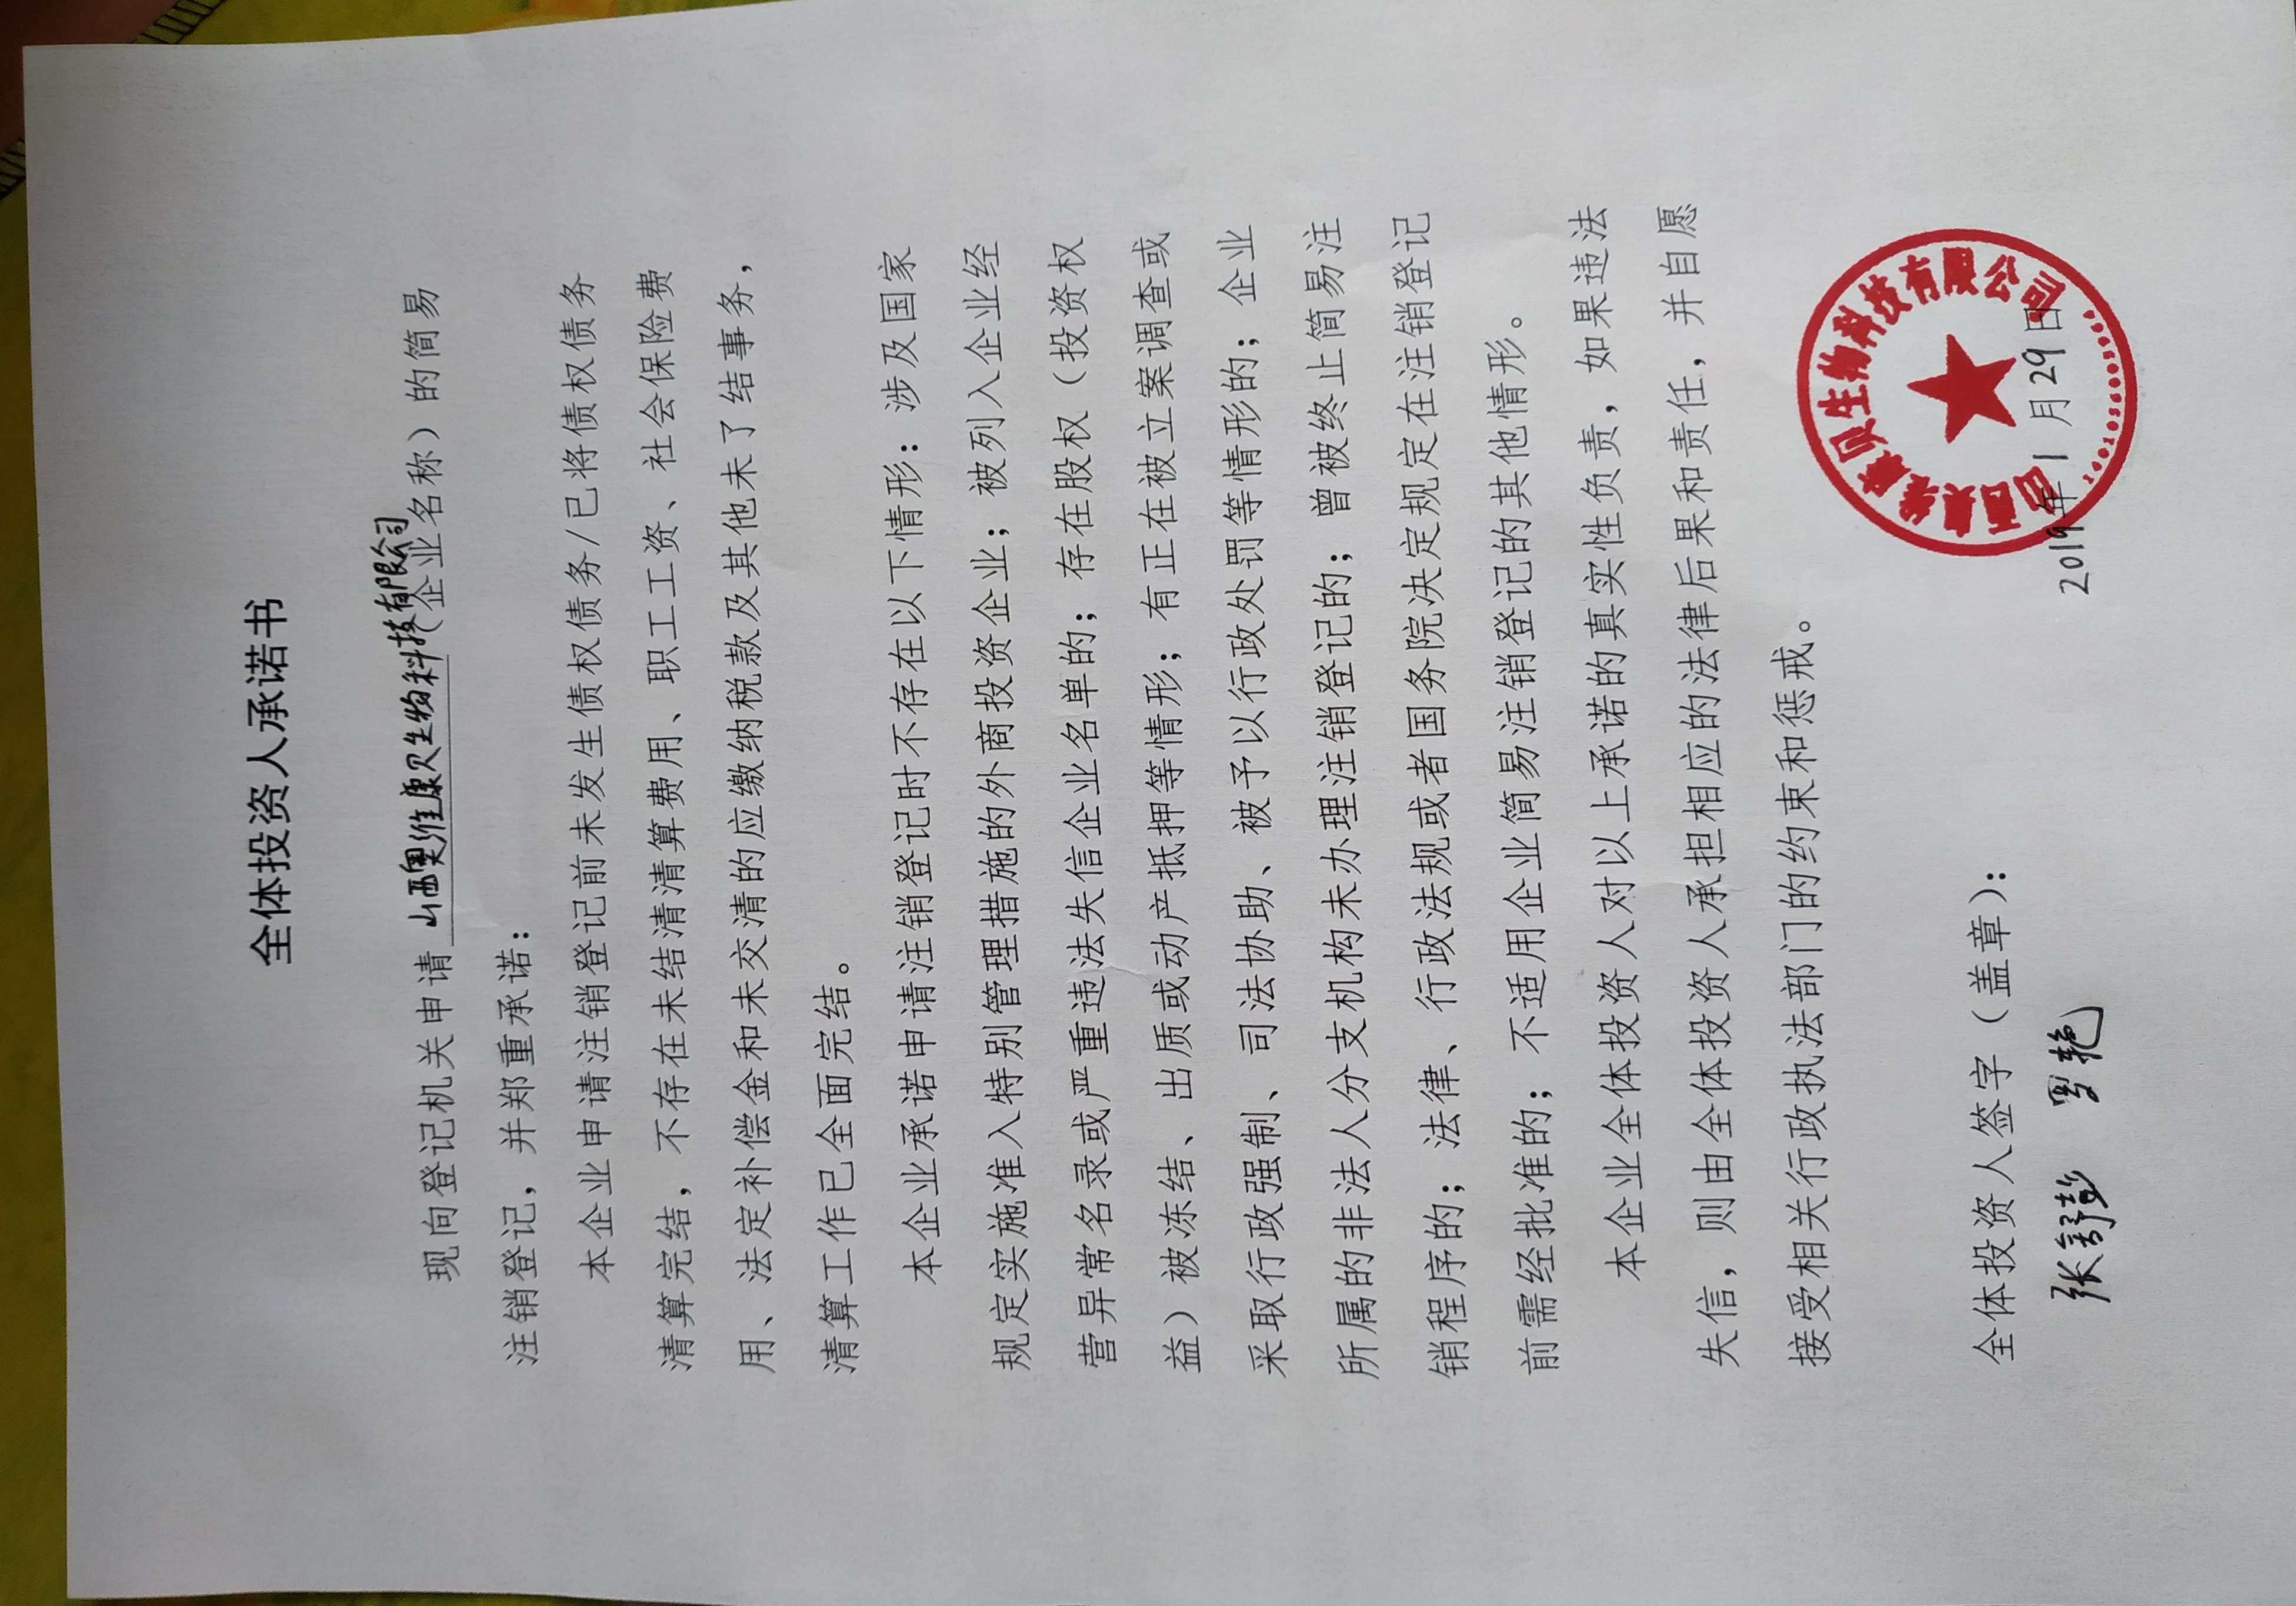 全体投资人承诺书
现向登记机关申请山西奥维康贝生物科技有限公司(企业名称)的简易
注销登记，并郑重承诺：
本企业申请注销登记前未发生债权债务/已将债权债务
清算完结，不存在未结清清算费用、职工工资、社会保险费
用、法定补偿金和未交清的应缴纳税款及其他未了结事务，
清算工作已全面完结。
本企业承诺申请注销登记时不存在以下情形：涉及国家
规定实施准入特别管理措施的外商投资企业；被列入企业经
营异常名录或严重违法失信企业名单的；存在股权（投资权
益）被冻结、出质或动产抵押等情形；有正在被立案调查或
采取行政强制、司法协助、被予以行政处罚等情形的；企业
所属的非法人分支机构未办理注销登记的；曾被终止简易注
销程序的；法律、行政法规或者国务院决定规定在注销登记
前需经批准的；不适用企业简易注销登记的其他情形。
本企业全体投资人对以上承诺的真实性负责，如果违法
失信，则由全体投资人承担相应的法律后果和责任，并自愿
接受相关行政执法部门的约束和惩戒。
全体投资人签字（盖章）：
张舒彭 罗艳
2019年1月29日
山西奥维康贝生物科技有限公司